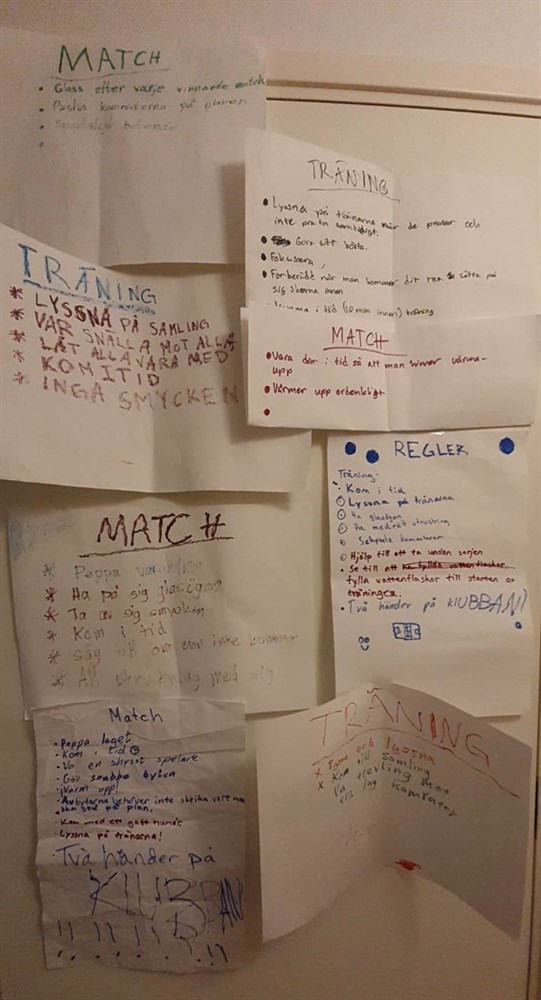 MATCH
• Glass efter varje vinnande match
• Positiva kommentarer på planen
•
TRÄNING
• Lyssna på tränarna när de pratar och
inte prata samtidigt.
• Göra sitt bästa.
• Fokusera,
• Förberedd när man kommer dit tex sätta på
sig skorna innan
i tid (10 min innan) träning
TRÄNING
* LYSSNA PÅ SAMLING
* VAR SNÄLLA MOT ALLA
* LÅT ALLA VARA MED
* KOM I TID
* INGA SMYCKEN
MATCH
• Vara där i tid så att man hinner värma-
upp
• Värmer upp ordentligt
•
REGLER
Träning:
• Kom i tid
Lyssna på tränarna
Ha glasögon
Ha med rätt utrustning
kommentarer
Hjälp till att ta undan sarjen
• Se till att ha fyllda vattenflaskor
fylla vattenflaskor till starten av
träningen.
• Två händer på KLUBBAN!
MATCH
* Peppa varandra
* Ha på sig glasögon
* Ta av sig smycken
* Kom i tid
* Säg till om man inte kommer
* All utrustning med sig
Match
• Peppa laget
• Kom i tid
• Va en schysst spelare
• Gör snabba byten
• Värm upp!
• Avbytarna behöver inte skrika vart man
ska stå på plan.
• Kom med ett gott humör
• Lyssna på tränarna!
Två händer på
KLUBBAN
!! !! !! !! !! !!
TRÄNING
x Tyst och lyssna
x Kom till samling
Va trevling mot
ens lag kamrater